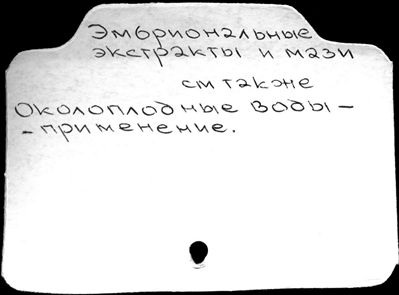 Эмбриональные
экстракты и мази
см также
Околоплодные воды –
- применение.